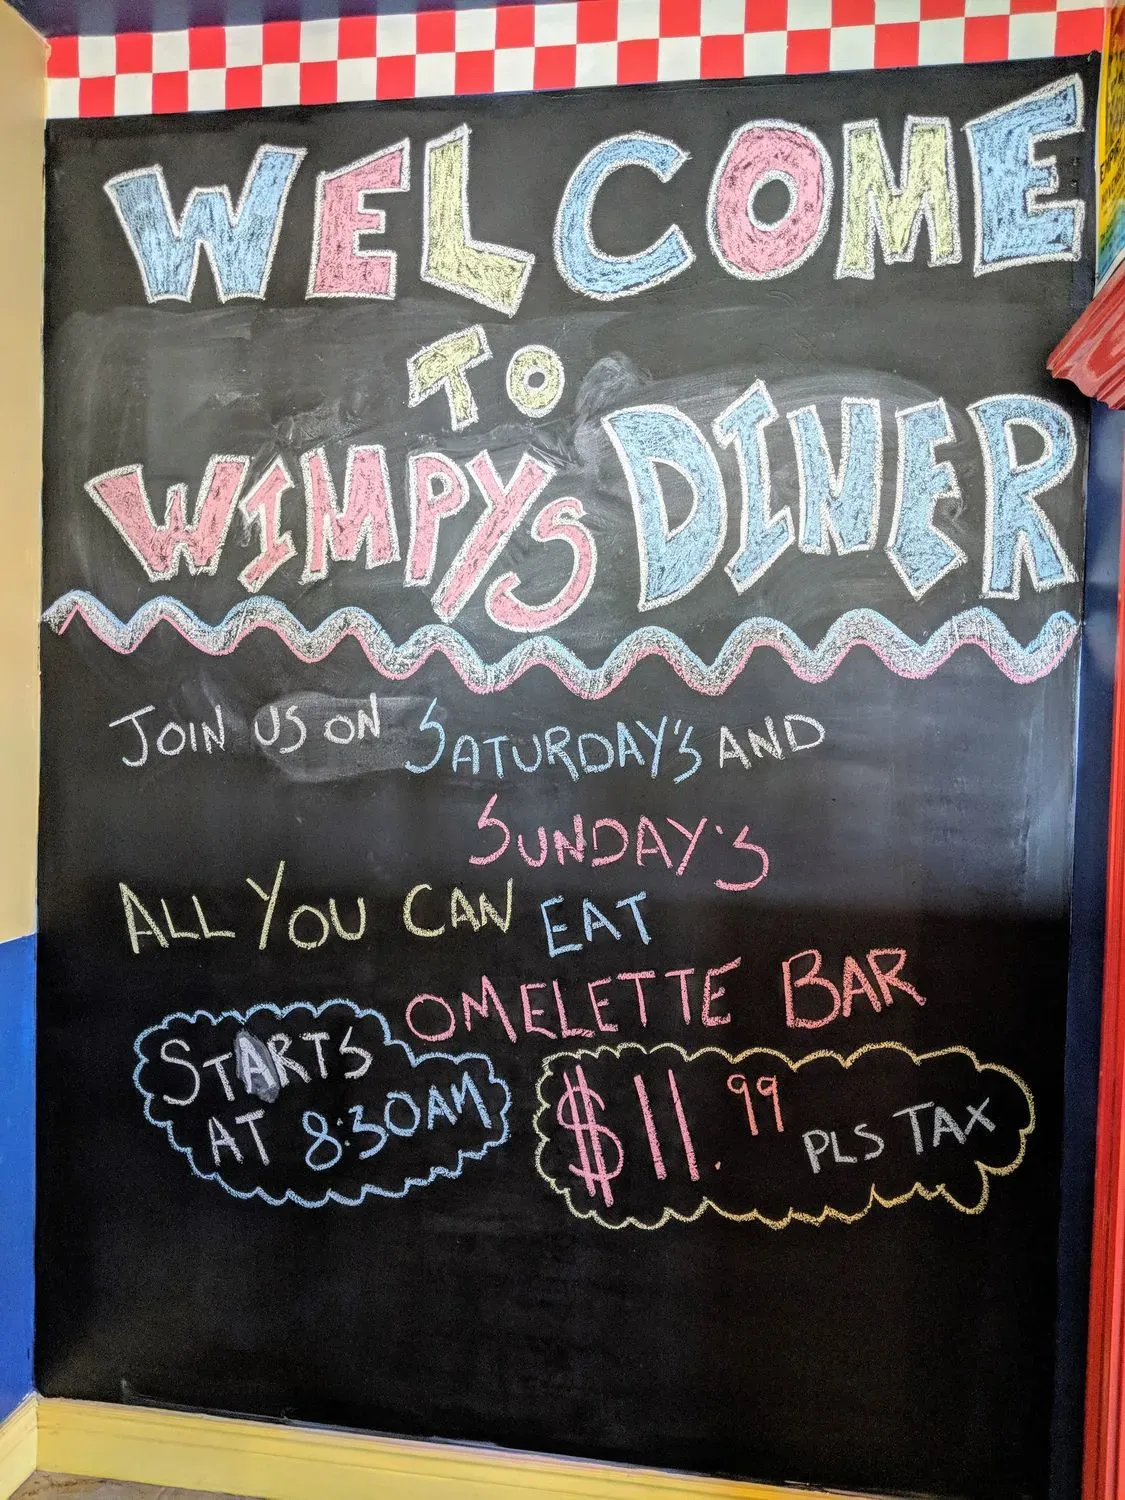 WELCOME
TO
WIMPYS DINER
JOIN US ON SATURDAY'S AND
SUNDAY'S
ALL YOU CAN EAT
OMELETTE BAR
STARTS
AT 8:30AM
$11.99 PLS TAX